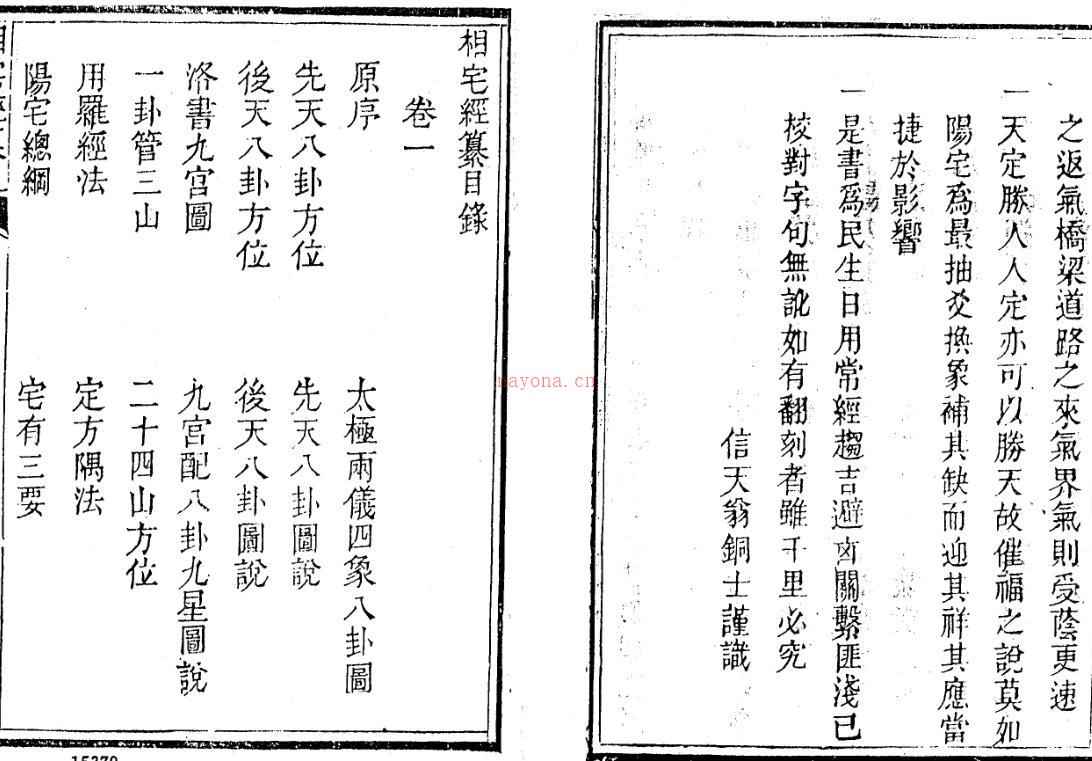 之返氣橋梁道路之來氣界氣則受蔭更速
一天定勝人人定亦可以勝天故催福之說莫如
陽宅爲最抽爻換象補其缺而迎其祥其應當
捷於影響
一是書爲民生日用常經趨吉避凶關繫匪淺已
校對字句無訛如有翻刻者雖千里必究
信天翁銅士謹識
相宅經纂目錄
卷一
原序
太極兩儀四象八卦圖
先天八卦方位
先天八卦圖說
後天八卦方位
後天八卦圖說
洛書九宮圖
九宮配八卦九星圖說
一卦管三山
二十四山方位
用羅經法
定方隅法
陽宅總綱
宅有三要
nayona.cn